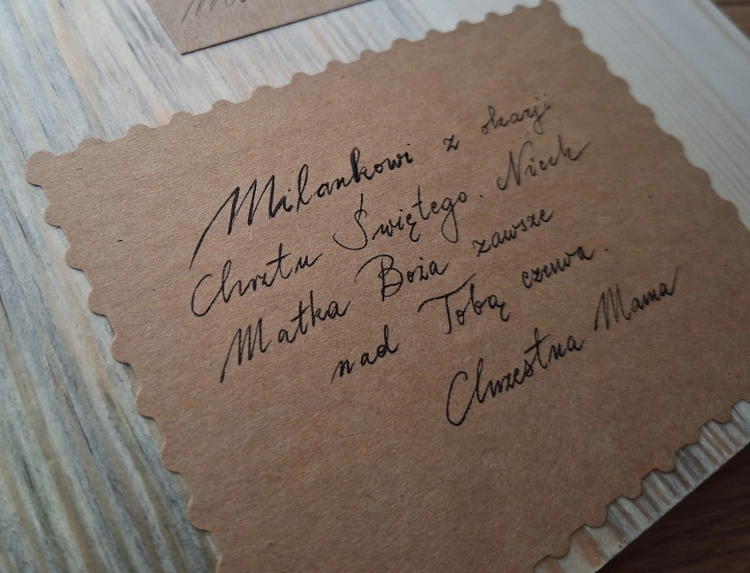 Milankowi z okazji
Chrztu Świętego. Niech
Matka Boża zawsze
nad Tobą czuwa.
Chrzestna Mama